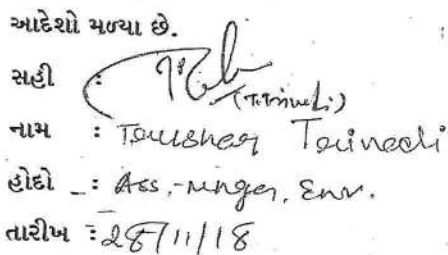 આદેશો મળ્યા છે.
સહી :
(T.Trivedi)
નામ : Toushar Trivedi
હોદો : Ass.-mnger, Env.
તારીખ : 28/11/18